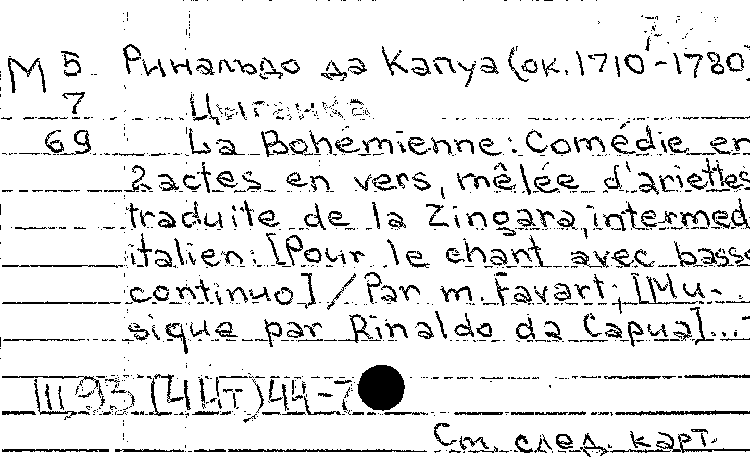 М 5 Ринальдо да Капуа (ок. 1710-1780
7 Цыганка
69 La Bohémienne: Comédie en
2 actes en vers, mêlée d'ariettes
traduite de la Zingara, intermed
italien: [Pour le chant avec basse
continuo] / Par m. Favart; [Mu-
sique par Rinaldo da Capua]...-
III, 93 (4 ЦТ) 44-7
См. след. карт.